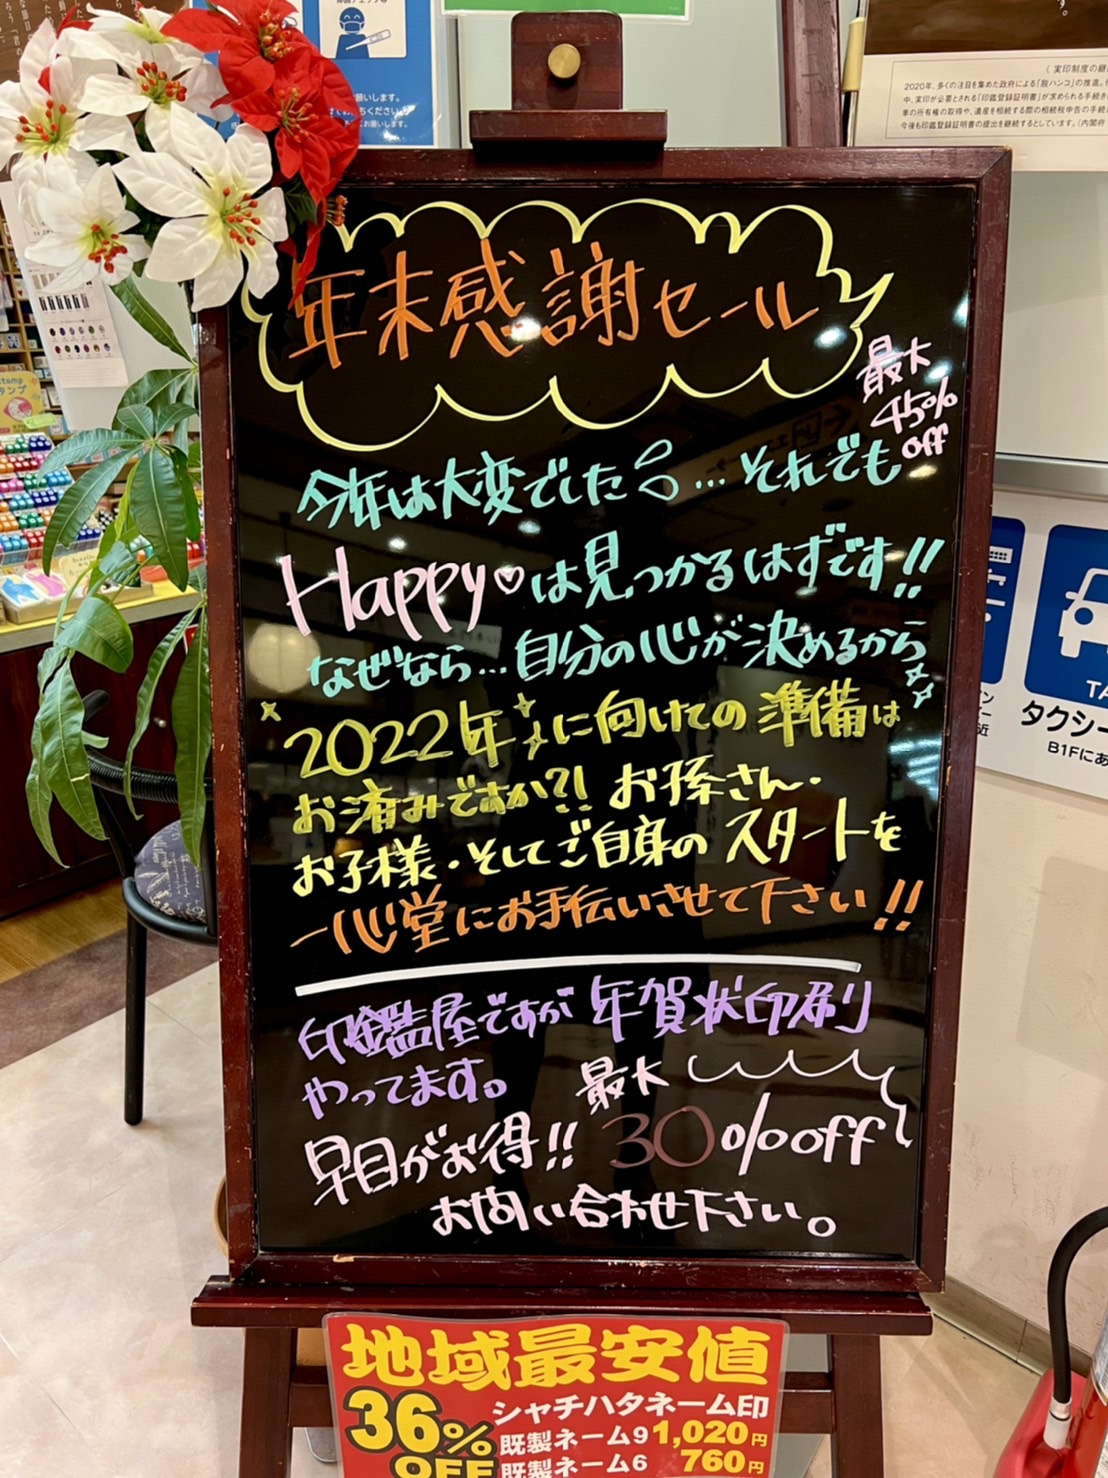 年末感謝セール
最大
45%
off
今年は大変でした…それでも
Happy♡は見つかるはずです!!
なぜなら…自分の心が決めるから
2022年に向けての準備は
お済みですか?! お孫さん・
お子様・そしてご自身のスタートを
一心堂にお手伝いさせて下さい!!
印鑑屋ですが年賀状印刷
やってます。
最大
早目がお得!! 30%off
お問い合わせ下さい。
地域最安値
36%
OFF
シャチハタネーム印
既製ネーム9 1,020円
既製ネーム6 760円
タクシー
B1Fにあ